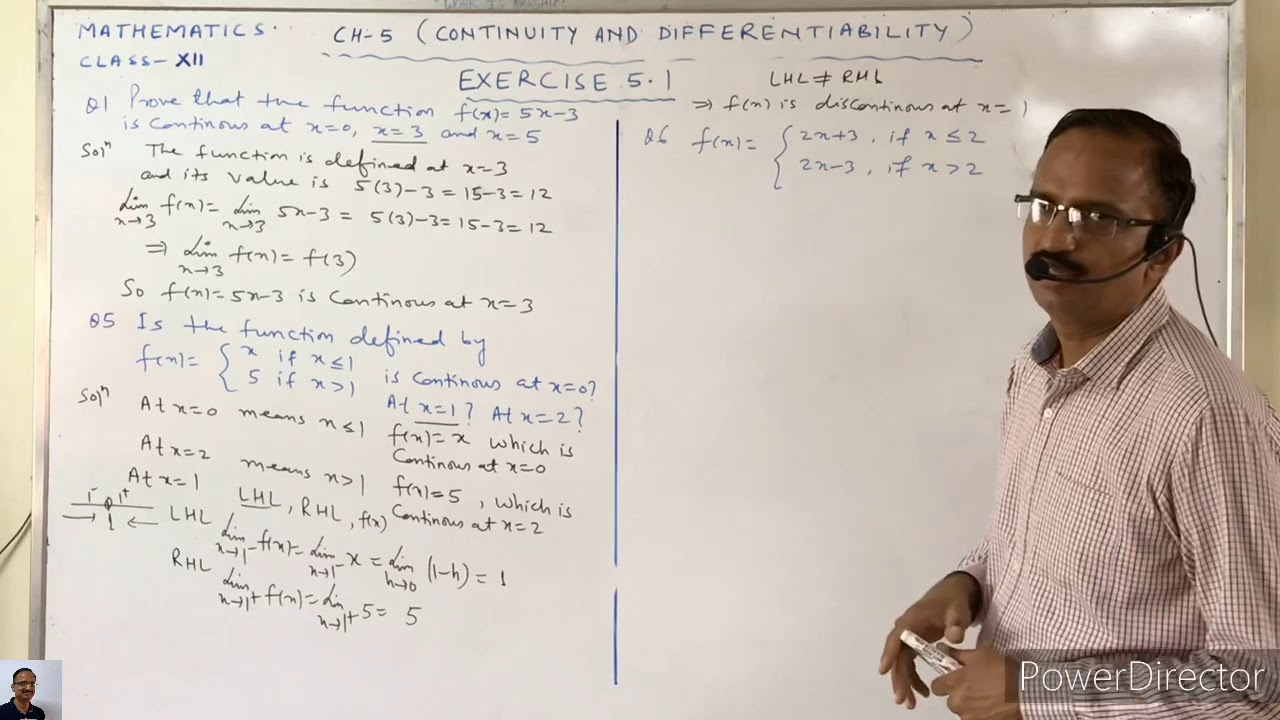 MATHEMATICS.
CH-5 (CONTINUITY AND DIFFERENTIABILITY)
CLASS-XII
EXERCISE 5.1
Q1 Prove that the function f(x)=5x-3
is continous at x=0, x=3 and x=5
Solⁿ The function is defined at x=3
and its value is 5(3)-3=15-3=12
lim x→3 f(x)= lim x→3 5x-3 = 5(3)-3=15-3=12
⇒ lim x→3 f(x)= f(3)
So f(x)=5x-3 is continous at x=3
Q5 Is the function defined by
f(x)= { x if x≤1
5 if x>1 is continous at x=0?
At x=1? At x=2?
Solⁿ At x=0 means x≤1 f(x)=x which is
continous at x=0
At x=2 means x>1 f(x)=5, which is
continous at x=2
At x=1 LHL, RHL, f(x)
1⁻ 1⁺
1
LHL lim x→1⁻ f(x)= lim x→1⁻ x = lim h→0 (1-h) = 1
RHL lim x→1⁺ f(x)= lim x→1⁺ 5= 5
LHL ≠ RHL
⇒ f(x) is discontinous at x=1
Q6 f(x)= { 2x+3, if x≤2
2x-3, if x>2
PowerDirector